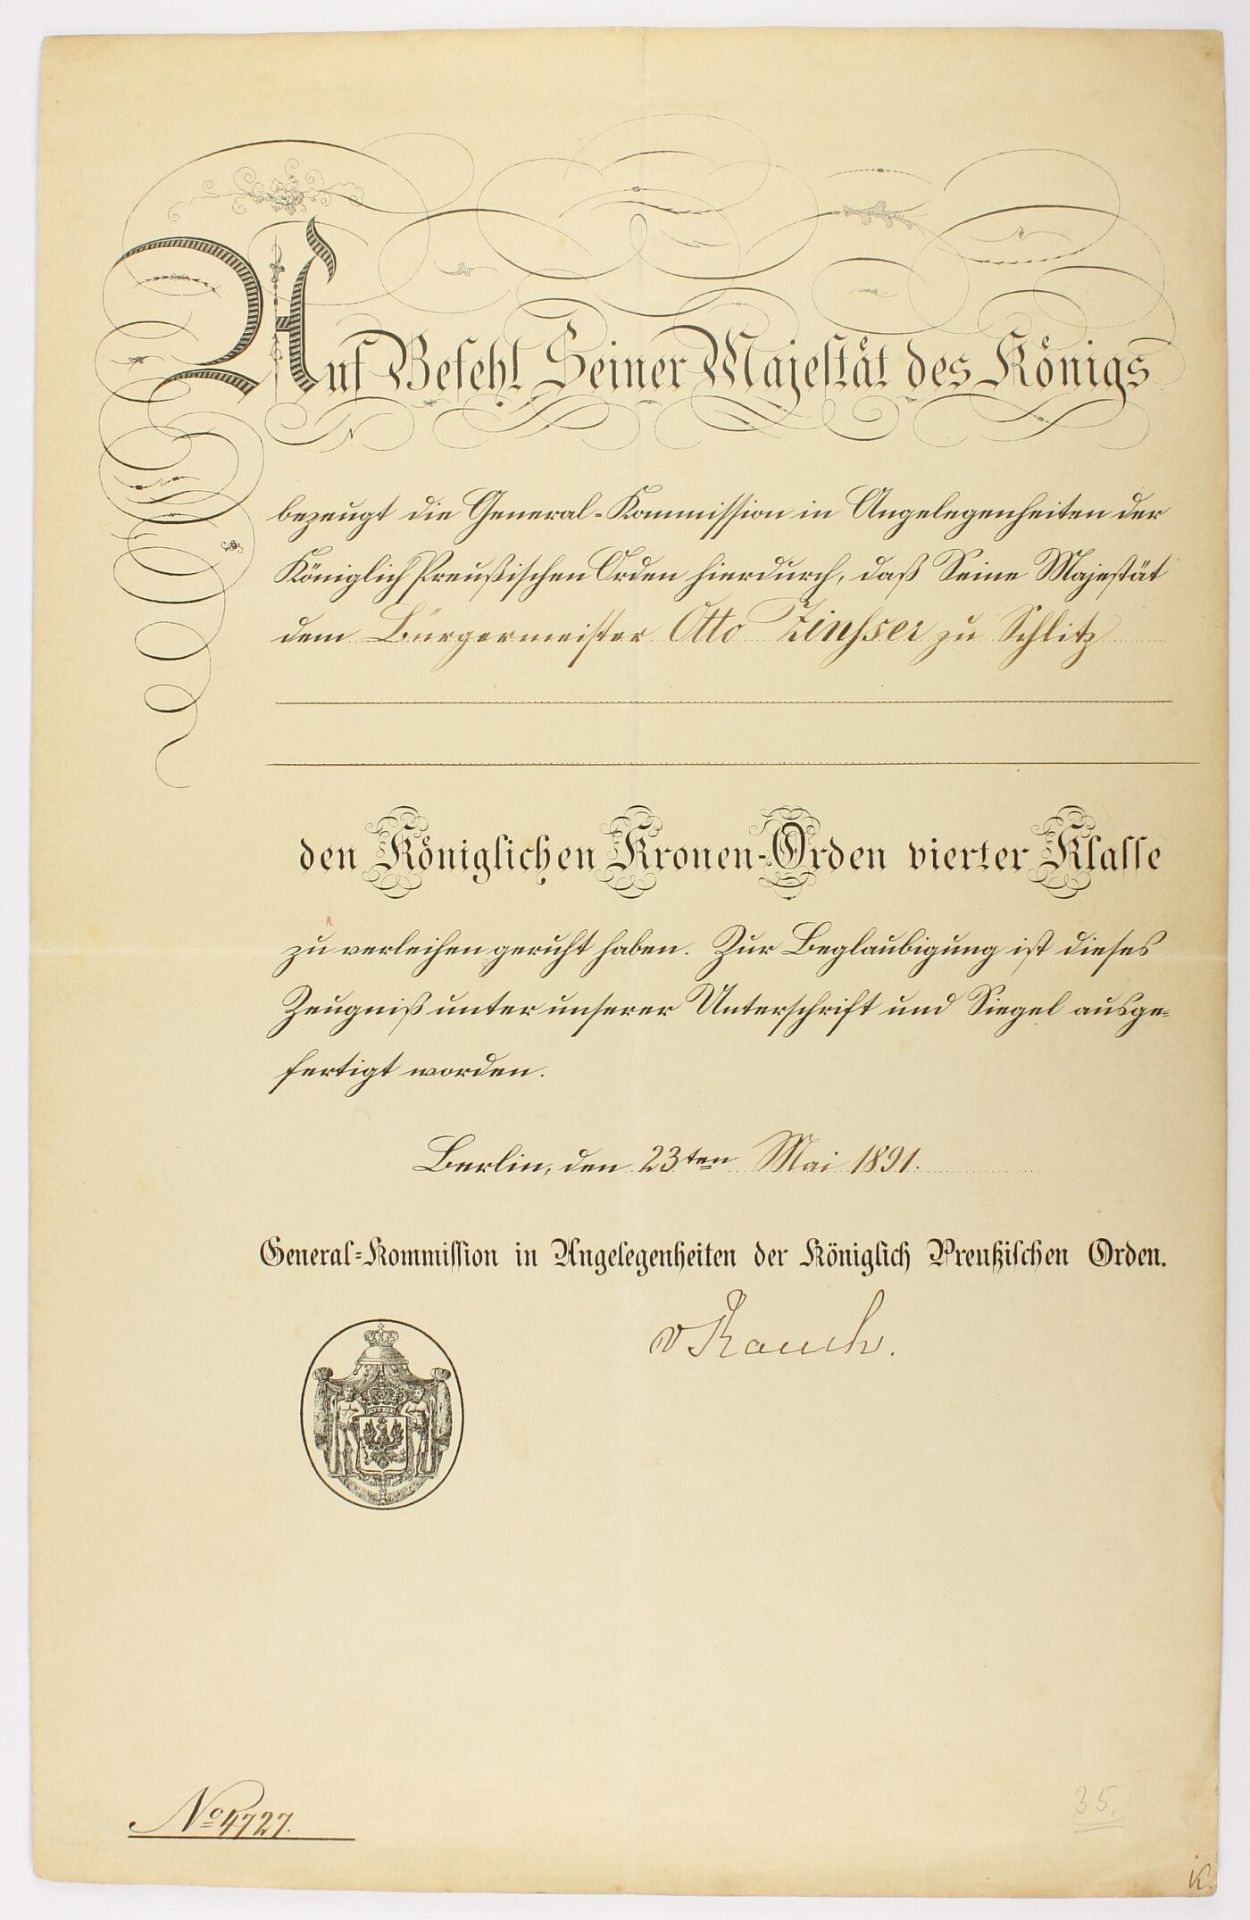 Auf Befehl Seiner Majestät des Königs
bezeugt die General-Kommission in Angelegenheiten der
Königlich Preußischen Orden hierdurch, daß Seine Majestät
dem Bürgermeister Otto Zinsser zu Schlitz
den Königlichen Kronen-Orden vierter Klasse
zu verleihen geruht haben. Zur Beglaubigung ist dieses
Zeugniß unter unserer Unterschrift und Siegel ausge-
fertigt worden.
Berlin, den 23ten Mai 1891.
General-Kommission in Angelegenheiten der Königlich Preußischen Orden.
v Rauch.
No 4727.
35.
K.